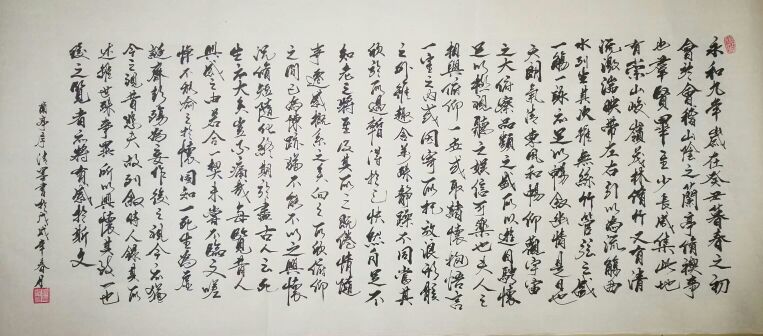 永和九年歲在癸丑暮春之初
會於會稽山陰之蘭亭脩禊事
也羣賢畢至少長咸集此地
有崇山峻嶺茂林脩竹又有清
流激湍映帶左右引以為流觴曲
水列坐其次雖無絲竹管弦之盛
一觴一詠亦足以暢敘幽情是日也
天朗氣清惠風和暢仰觀宇宙
之大俯察品類之盛所以遊目騁懷
足以極視聽之娛信可樂也夫人之
相與俯仰一世或取諸懷抱悟言
一室之內或因寄所托放浪形骸
之外雖趣舍萬殊靜躁不同當其
欣於所遇暫得於己快然自足不
知老之將至及其所之既惓情隨
事遷感慨系之矣向之所欣俯仰
之間已為陳跡猶不能不以之興懷
況脩短隨化終期於盡古人云死
生亦大矣豈不痛哉每覽昔人
興感之由若合一契未嘗不臨文嗟
悼不能喻之於懷固知一死生為虛
誕齊彭殤為妄作後之視今亦猶
今之視昔悲夫故列敘時人錄其所
述雖世殊事異所以興懷其致一也
後之覽者亦將有感於斯文
蘭亭序 書於戊戌年春月